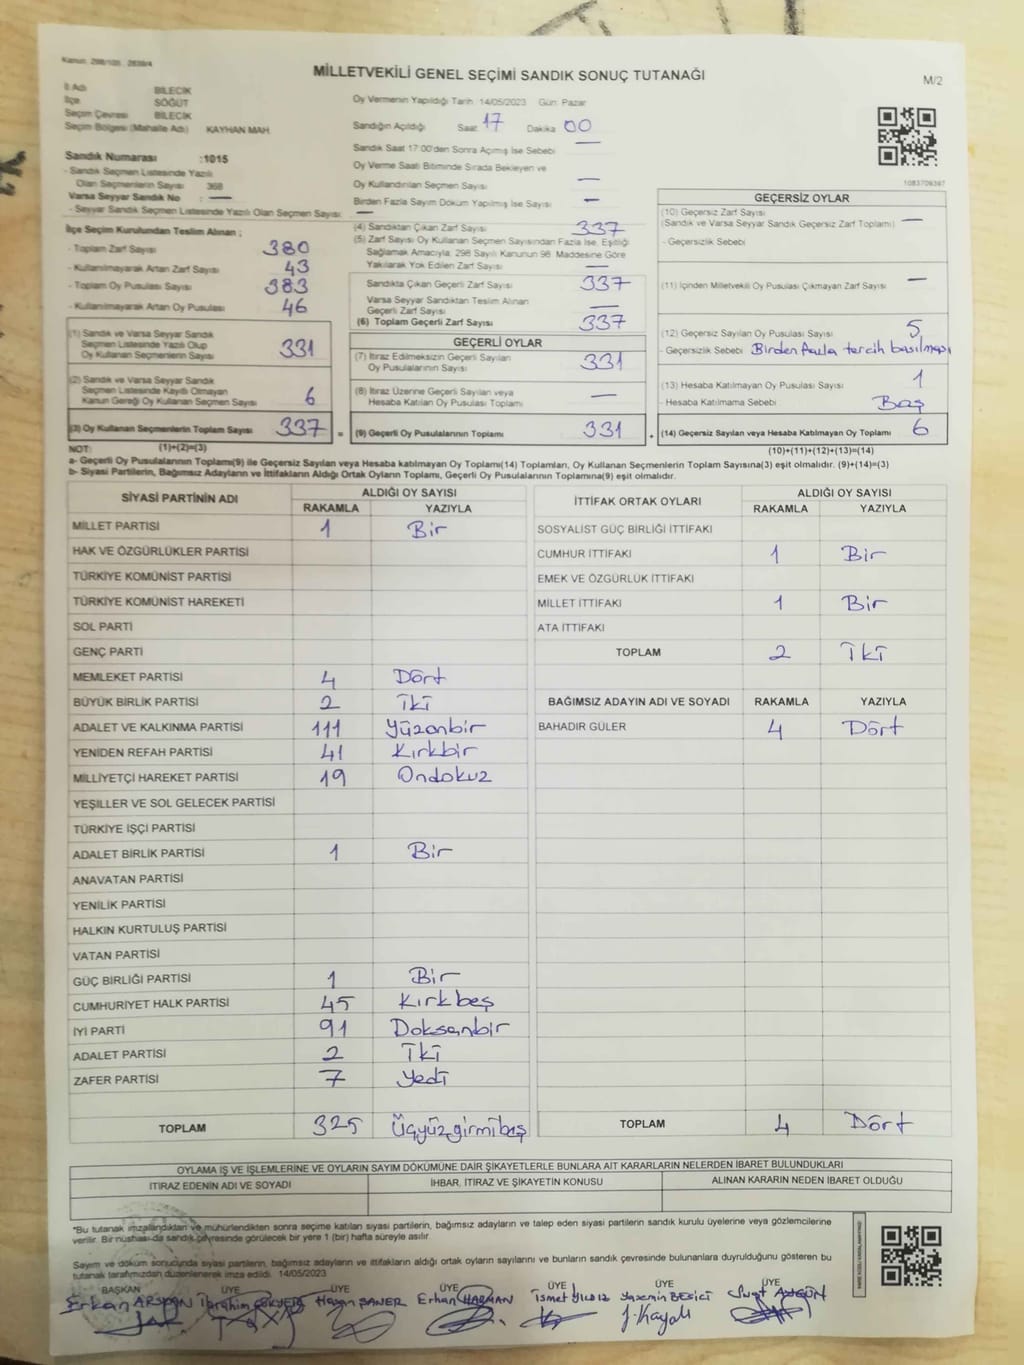 Kanun: 298/105 , 2839/4
MİLLETVEKİLİ GENEL SEÇİMİ SANDIK SONUÇ TUTANAĞI
M/2
İl Adı BİLECİK
İlçe SÖĞÜT
Seçim Çevresi BİLECİK
Seçim Bölgesi (Mahalle Adı) KAYHAN MAH.
Sandık Numarası :1015
- Sandık Seçmen Listesinde Yazılı
Olan Seçmenlerin Sayısı 368
Varsa Seyyar Sandık No : —
- Seyyar Sandık Seçmen Listesinde Yazılı Olan Seçmen Sayısı: —
Oy Vermenin Yapıldığı Tarih: 14/05/2023 Gün: Pazar
Sandığın Açıldığı Saat: 17 Dakika 00
Sandık Saat 17:00'den Sonra Açımış İse Sebebi —
Oy Verme Saati Bitiminde Sırada Bekleyen ve
Oy Kullandırılan Seçmen Sayısı —
Birden Fazla Sayım Döküm Yapılmış İse Sayısı —
1083709397
İlçe Seçim Kurulundan Teslim Alınan ;
- Toplam Zarf Sayısı 380
- Kullanılmayarak Artan Zarf Sayısı 43
- Toplam Oy Pusulası Sayısı 383
- Kullanılmayarak Artan Oy Pusulası 46
(1) Sandık ve Varsa Seyyar Sandık
Seçmen Listesinde Yazılı Olup
Oy Kullanan Seçmenlerin Sayısı 331
(2) Sandık ve Varsa Seyyar Sandık
Seçmen Listesinde Kayıtlı Olmayan
Kanun Gereği Oy Kullanan Seçmen Sayısı 6
(3) Oy Kullanan Seçmenlerin Toplam Sayısı 337 =
(4) Sandıktan Çıkan Zarf Sayısı 337
(5) Zarf Sayısı Oy Kullanan Seçmen Sayısından Fazla İse, Eşitliği
Sağlamak Amacıyla, 298 Sayılı Kanunun 98. Maddesine Göre
Yakılarak Yok Edilen Zarf Sayısı —
Sandıkta Çıkan Geçerli Zarf Sayısı 337
Varsa Seyyar Sandıktan Teslim Alınan
Geçerli Zarf Sayısı —
(6) Toplam Geçerli Zarf Sayısı 337
GEÇERLİ OYLAR
(7) İtiraz Edilmeksizin Geçerli Sayılan
Oy Pusulalarının Sayısı 331
(8) İtiraz Üzerine Geçerli Sayılan veya
Hesaba Katılan Oy Pusulası Toplamı —
(9) Geçerli Oy Pusulalarının Toplamı 331 +
GEÇERSİZ OYLAR
(10) Geçersiz Zarf Sayısı
(Sandık ve Varsa Seyyar Sandık Geçersiz Zarf Toplamı) —
- Geçersizlik Sebebi
(11) İçinden Milletvekili Oy Pusulası Çıkmayan Zarf Sayısı —
(12) Geçersiz Sayılan Oy Pusulası Sayısı 5
- Geçersizlik Sebebi Birden fazla tercih basılması
(13) Hesaba Katılmayan Oy Pusulası Sayısı 1
- Hesaba Katılmama Sebebi Boş
(14) Geçersiz Sayılan veya Hesaba Katılmayan Oy Toplamı 6
NOT: (1)+(2)=(3)
(10)+(11)+(12)+(13)=(14)
a- Geçerli Oy Pusulalarının Toplamı(9) ile Geçersiz Sayılan veya Hesaba katılmayan Oy Toplamı(14) Toplamları, Oy Kullanan Seçmenlerin Toplam Sayısına(3) eşit olmalıdır. (9)+(14)=(3)
b- Siyasi Partilerin, Bağımsız Adayların ve İttifakların Aldığı Ortak Oyların Toplamı, Geçerli Oy Pusulalarının Toplamına(9) eşit olmalıdır.
SİYASİ PARTİNİN ADI ALDIĞI OY SAYISI
RAKAMLA YAZIYLA
MİLLET PARTİSİ 1 Bir
HAK VE ÖZGÜRLÜKLER PARTİSİ
TÜRKİYE KOMÜNİST PARTİSİ
TÜRKİYE KOMÜNİST HAREKETİ
SOL PARTİ
GENÇ PARTİ
MEMLEKET PARTİSİ 4 Dört
BÜYÜK BİRLİK PARTİSİ 2 İki
ADALET VE KALKINMA PARTİSİ 111 Yüzonbir
YENİDEN REFAH PARTİSİ 41 Kırkbir
MİLLİYETÇİ HAREKET PARTİSİ 19 Ondokuz
YEŞİLLER VE SOL GELECEK PARTİSİ
TÜRKİYE İŞÇİ PARTİSİ
ADALET BİRLİK PARTİSİ 1 Bir
ANAVATAN PARTİSİ
YENİLİK PARTİSİ
HALKIN KURTULUŞ PARTİSİ
VATAN PARTİSİ
GÜÇ BİRLİĞİ PARTİSİ 1 Bir
CUMHURİYET HALK PARTİSİ 45 Kırkbeş
İYİ PARTİ 91 Doksanbir
ADALET PARTİSİ 2 İki
ZAFER PARTİSİ 7 Yedi
TOPLAM 325 Üçyüzyirmibeş
İTTİFAK ORTAK OYLARI ALDIĞI OY SAYISI
RAKAMLA YAZIYLA
SOSYALİST GÜÇ BİRLİĞİ İTTİFAKI
CUMHUR İTTİFAKI 1 Bir
EMEK VE ÖZGÜRLÜK İTTİFAKI
MİLLET İTTİFAKI 1 Bir
ATA İTTİFAKI
TOPLAM 2 İki
BAĞIMSIZ ADAYIN ADI VE SOYADI RAKAMLA YAZIYLA
BAHADIR GÜLER 4 Dört
TOPLAM 4 Dört
OYLAMA İŞ VE İŞLEMLERİNE VE OYLARIN SAYIM DÖKÜMÜNE DAİR ŞİKAYETLERLE BUNLARA AİT KARARLARIN NELERDEN İBARET BULUNDUKLARI
İTİRAZ EDENİN ADI VE SOYADI İHBAR, İTİRAZ VE ŞİKAYETİN KONUSU ALINAN KARARIN NEDEN İBARET OLDUĞU
*Bu tutanak imzalandıktan ve mühürlendikten sonra seçime katılan siyasi partilerin, bağımsız adayların ve talep eden siyasi partilerin sandık kurulu üyelerine veya gözlemcilerine
verilir. Bir nüshası da sandık çevresinde görülecek bir yere 1 (bir) hafta süreyle asılır.
Sayım ve döküm sonucunda siyasi partilerin, bağımsız adayların ve ittifakların aldığı ortak oyların sayılarını ve bunların sandık çevresinde bulunanlara duyrulduğunu gösteren bu
tutanak tarafımızdan düzenlenerek imza edildi. 14/05/2023
BAŞKAN ÜYE ÜYE ÜYE ÜYE ÜYE ÜYE
Erkan ARSLAN Hasan ŞANER Erhan HARMAN İsmet YILDIZ Yasemin BEŞİCİ Suat AYGÜN